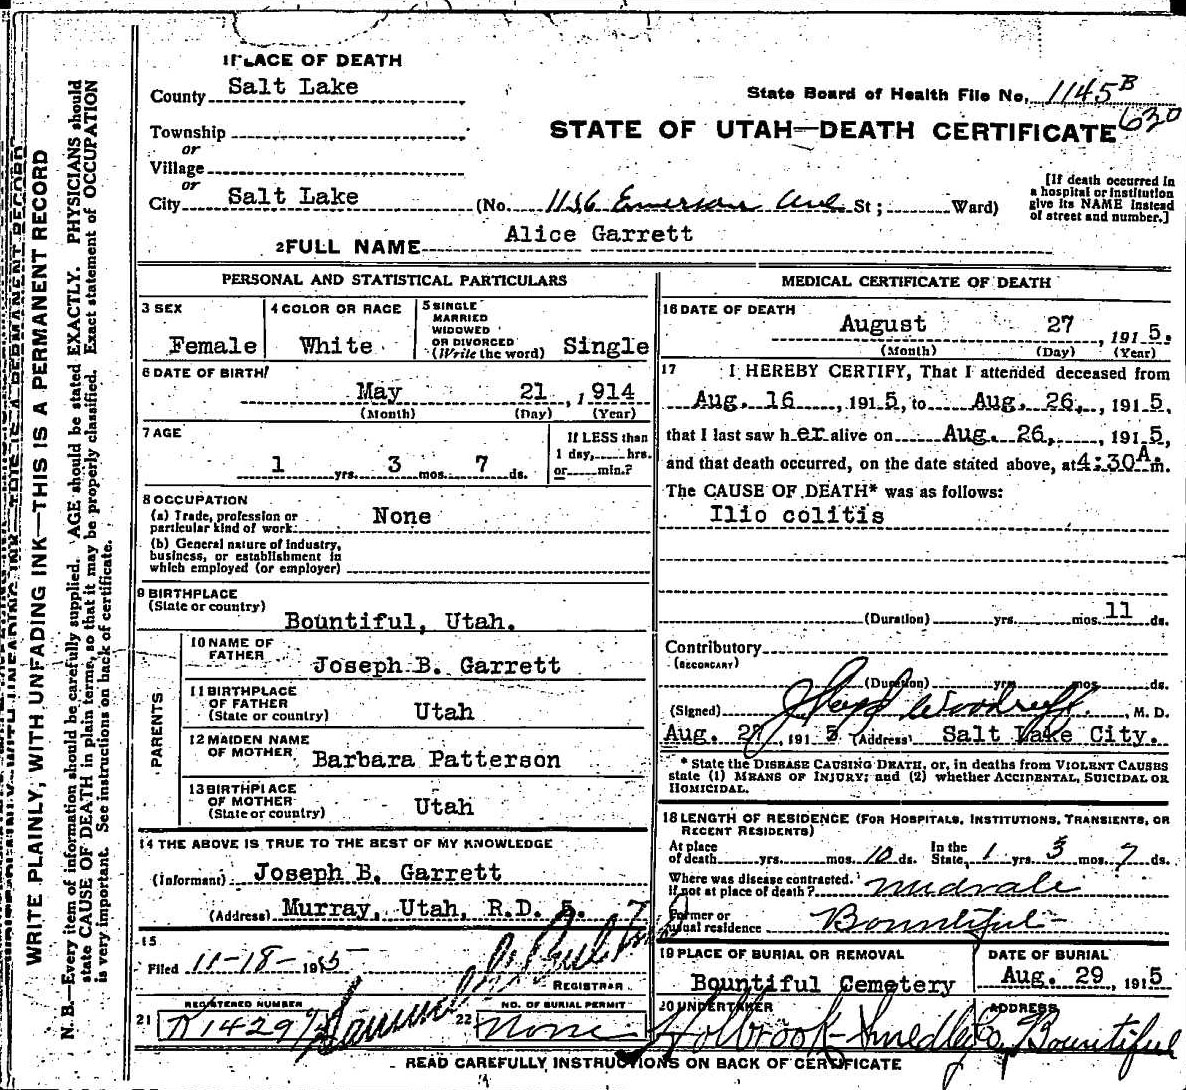 1 PLACE OF DEATH
County Salt Lake
State Board of Health File No. 1145 B
630
Township
or
STATE OF UTAH—DEATH CERTIFICATE
Village
or
City Salt Lake (No. 1156 Emerson Ave St; Ward)
[If death occurred in
a hospital or institution
give its NAME instead
of street and number.]
2 FULL NAME Alice Garrett
PERSONAL AND STATISTICAL PARTICULARS
3 SEX
Female
4 COLOR OR RACE
White
5 SINGLE
MARRIED
WIDOWED
OR DIVORCED
(Write the word) Single
6 DATE OF BIRTH
May 21, 1914
(Month) (Day) (Year)
7 AGE
1 yrs. 3 mos. 7 ds.
If LESS than
1 day, hrs.
or min.?
8 OCCUPATION
(a) Trade, profession or
particular kind of work None
(b) General nature of industry,
business, or establishment in
which employed (or employer)
9 BIRTHPLACE
(State or country)
Bountiful, Utah.
PARENTS
10 NAME OF
FATHER
Joseph B. Garrett
11 BIRTHPLACE
OF FATHER
(State or country) Utah
12 MAIDEN NAME
OF MOTHER Barbara Patterson
13 BIRTHPLACE
OF MOTHER
(State or country) Utah
14 THE ABOVE IS TRUE TO THE BEST OF MY KNOWLEDGE
(Informant) Joseph B. Garrett
(Address) Murray, Utah, R.D. 5.
15
Filed 11-18-1915
REGISTRAR
REGISTERED NUMBER
21
NO. OF BURIAL PERMIT
22 None
MEDICAL CERTIFICATE OF DEATH
16 DATE OF DEATH
August 27, 1915.
(Month) (Day) (Year)
17 I HEREBY CERTIFY, That I attended deceased from
Aug. 16, 1915, to Aug. 26,, 1915,
that I last saw her alive on Aug. 26,, 1915,
and that death occurred, on the date stated above, at 4:30 A m.
The CAUSE OF DEATH* was as follows:
Ilio colitis
(Duration) yrs. mos. 11 ds.
Contributory
(SECONDARY)
(Duration) yrs. mos. ds.
(Signed) Woodruff, M. D.
Aug. 27, 1915 (Address) Salt Lake City.
* State the DISEASE CAUSING DEATH, or, in deaths from VIOLENT CAUSES
state (1) MEANS OF INJURY; and (2) whether ACCIDENTAL, SUICIDAL OR
HOMICIDAL.
18 LENGTH OF RESIDENCE (FOR HOSPITALS, INSTITUTIONS, TRANSIENTS, OR
RECENT RESIDENTS)
At place
of death yrs. mos. 10 ds.
In the
State, 1 yrs. 3 mos. 7 ds.
Where was disease contracted,
if not at place of death? Midvale
Former or
usual residence Bountiful
19 PLACE OF BURIAL OR REMOVAL
Bountiful Cemetery
DATE OF BURIAL
Aug. 29, 1915
20 UNDERTAKER
Holbrook-Smedley Co,
ADDRESS
Bountiful
READ CAREFULLY INSTRUCTIONS ON BACK OF CERTIFICATE
WRITE PLAINLY, WITH UNFADING INK—THIS IS A PERMANENT RECORD
N. B.—Every item of information should be carefully supplied. AGE should be stated EXACTLY. PHYSICIANS should
state CAUSE OF DEATH in plain terms, so that it may be properly classified. Exact statement of OCCUPATION
is very important. See instructions on back of certificate.